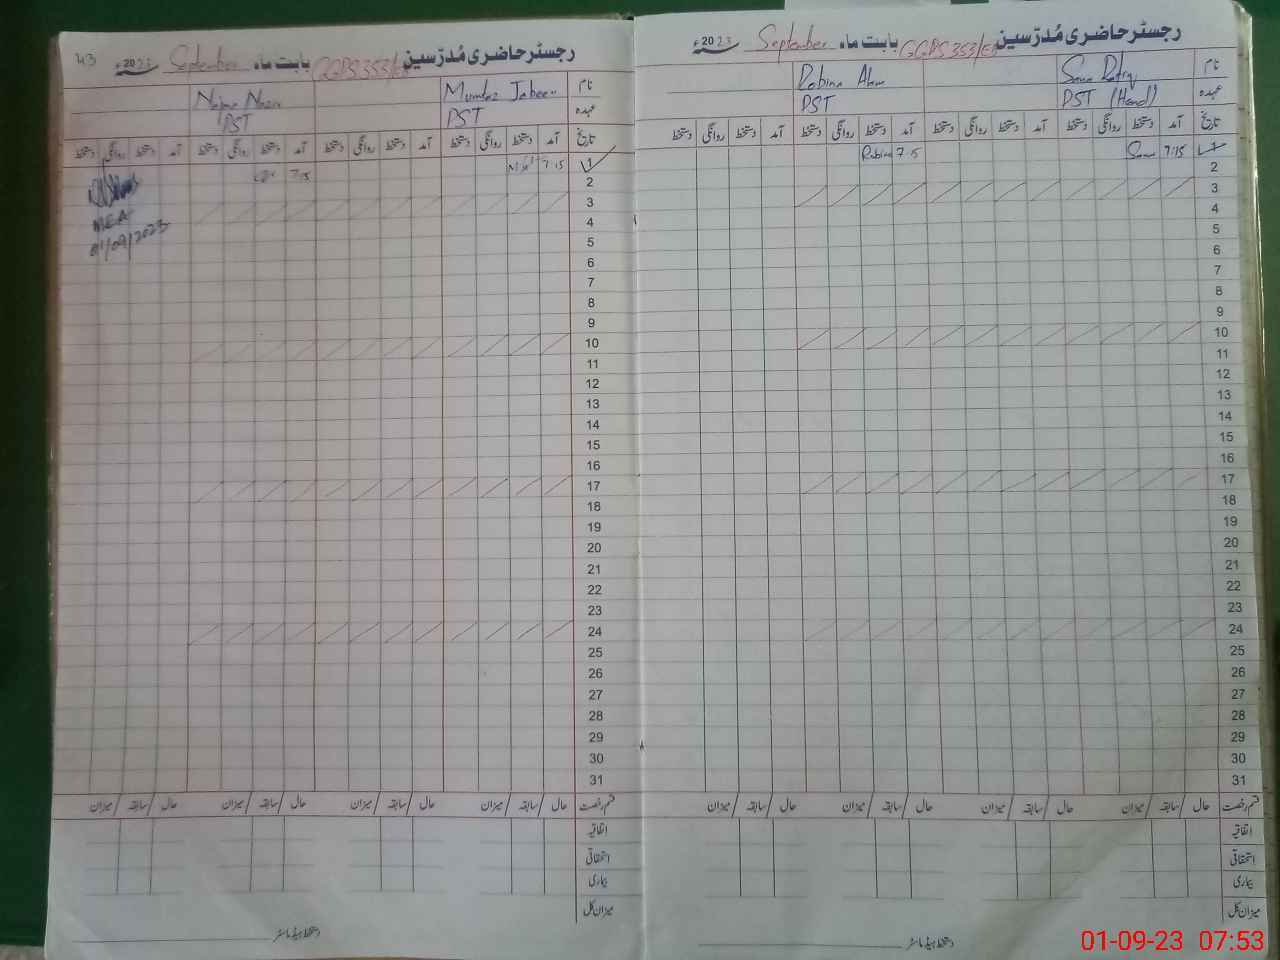 رجسٹر حاضری مُدرّسین GGPS 353/EB بابت ماہ September 2023ء
نام Sana Rafiq Robina Alam
عہدہ PST (Head) PST
تاریخ آمد دستخط روانگی دستخط آمد دستخط روانگی دستخط آمد دستخط روانگی دستخط آمد دستخط روانگی دستخط
1 7:15 Sana 7:15 Robina
2
3
4
5
6
7
8
9
10
11
12
13
14
15
16
17
18
19
20
21
22
23
24
25
26
27
28
29
30
31
قسم رخصت حال / سابقہ / میزان حال / سابقہ / میزان حال / سابقہ / میزان حال / سابقہ / میزان
اتفاقیہ
استحقاقی
بیماری
میزان کل
دستخط ہیڈ ماسٹر
43
رجسٹر حاضری مُدرّسین GGPS 353/EB بابت ماہ September 2023ء
نام Mumtaz Jabeen Najma Nasir
عہدہ PST PST
تاریخ آمد دستخط روانگی دستخط آمد دستخط روانگی دستخط آمد دستخط روانگی دستخط آمد دستخط روانگی دستخط
1 7:15 7:15
2
3
4
5
6
7
8
9
10
11
12
13
14
15
16
17
18
19
20
21
22
23
24
25
26
27
28
29
30
31
MEA
01/09/2023
قسم رخصت حال / سابقہ / میزان حال / سابقہ / میزان حال / سابقہ / میزان حال / سابقہ / میزان
اتفاقیہ
استحقاقی
بیماری
میزان کل
دستخط ہیڈ ماسٹر
01-09-23 07:53